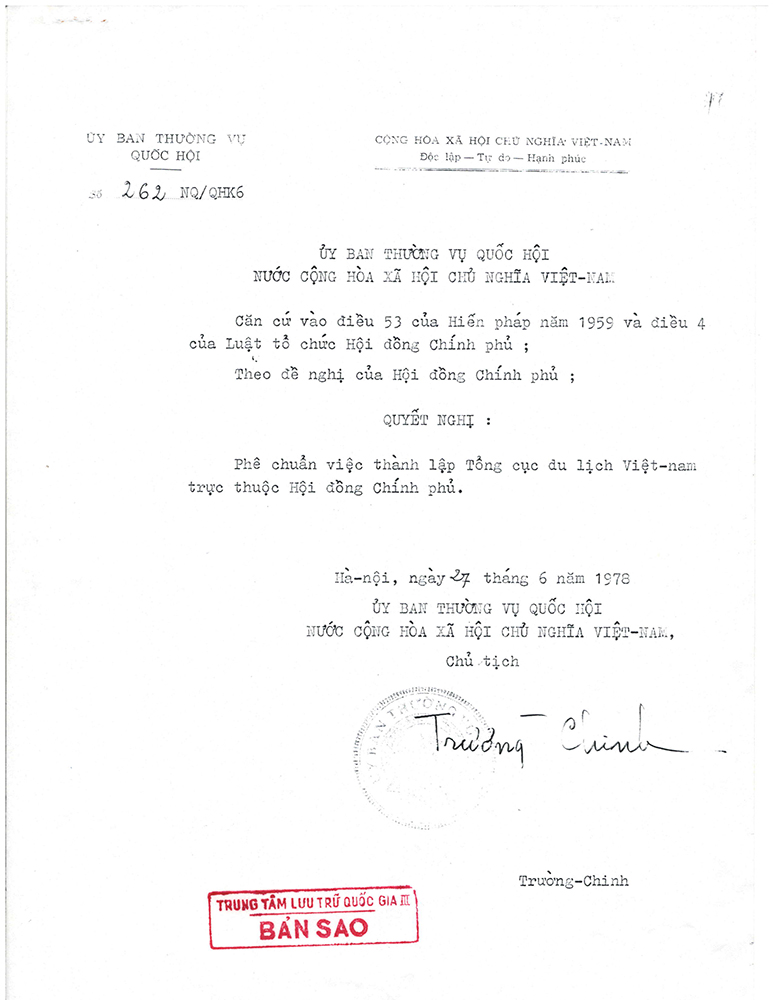 ỦY BAN THƯỜNG VỤ
QUỐC HỘI
Số 262 NQ/QHK6
CỘNG HÒA XÃ HỘI CHỦ NGHĨA VIỆT-NAM
Độc lập — Tự do — Hạnh phúc
ỦY BAN THƯỜNG VỤ QUỐC HỘI
NƯỚC CỘNG HÒA XÃ HỘI CHỦ NGHĨA VIỆT-NAM
Căn cứ vào điều 53 của Hiến pháp năm 1959 và điều 4
của Luật tổ chức Hội đồng Chính phủ ;
Theo đề nghị của Hội đồng Chính phủ ;
QUYẾT NGHỊ :
Phê chuẩn việc thành lập Tổng cục du lịch Việt-nam
trực thuộc Hội đồng Chính phủ.
Hà-nội, ngày 27 tháng 6 năm 1978
ỦY BAN THƯỜNG VỤ QUỐC HỘI
NƯỚC CỘNG HÒA XÃ HỘI CHỦ NGHĨA VIỆT-NAM,
Chủ tịch
ỦY BAN THƯỜNG
Trường Chinh
Trường-Chinh
TRUNG TÂM LƯU TRỮ QUỐC GIA III
BẢN SAO